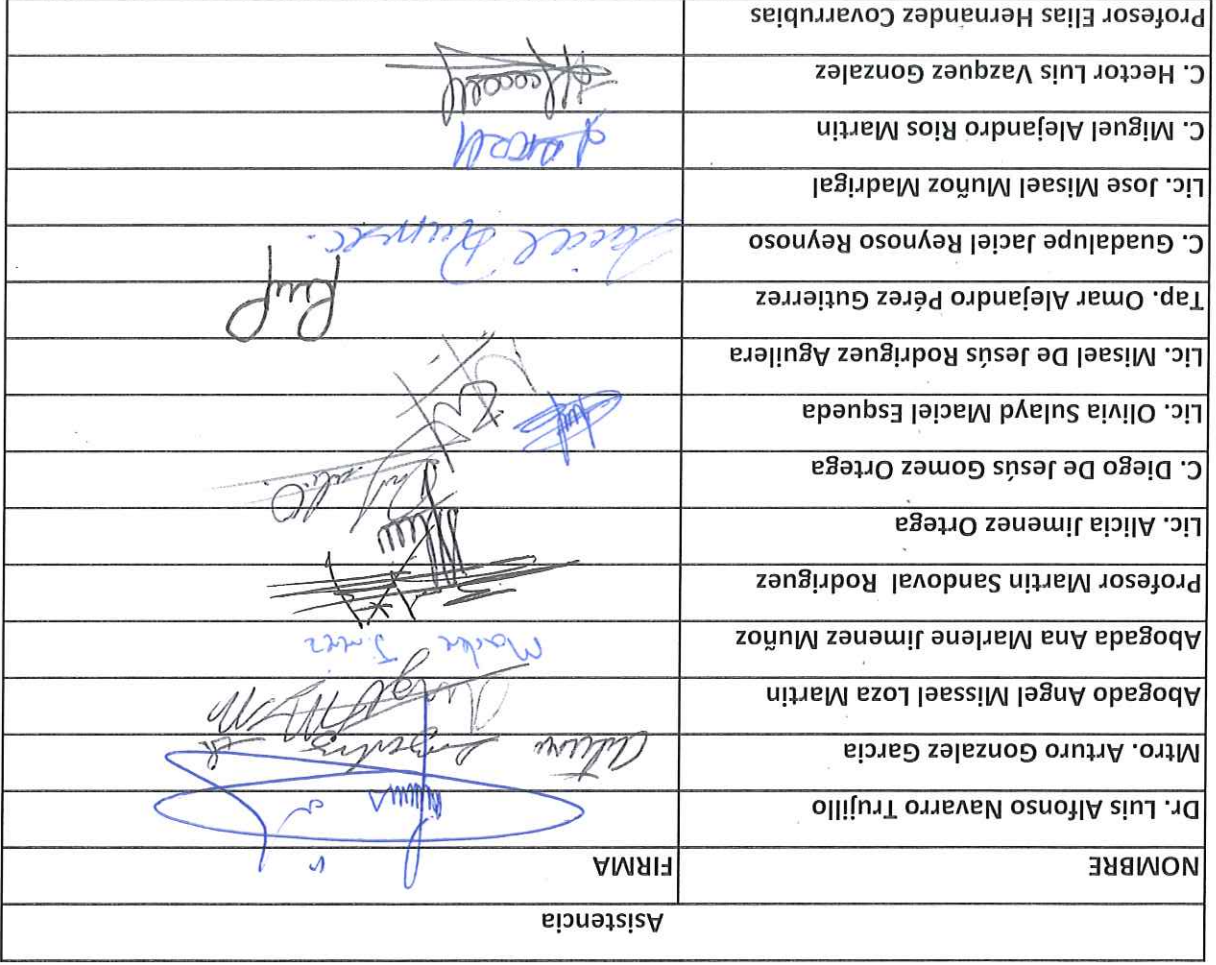 Asistencia
NOMBRE FIRMA
Dr. Luis Alfonso Navarro Trujillo
Mtro. Arturo Gonzalez Garcia Arturo
Abogado Angel Missael Loza Martin
Abogada Ana Marlene Jimenez Muñoz
Profesor Martin Sandoval Rodriguez
Lic. Alicia Jimenez Ortega
C. Diego De Jesús Gomez Ortega
Lic. Olivia Sulayd Maciel Esqueda
Lic. Misael De Jesús Rodriguez Aguilera
Tap. Omar Alejandro Pérez Gutierrez
C. Guadalupe Jaciel Reynoso Reynoso Jaciel
Lic. Jose Misael Muñoz Madrigal
C. Miguel Alejandro Rios Martin
C. Hector Luis Vazquez Gonzalez
Profesor Elias Hernandez Covarrubias